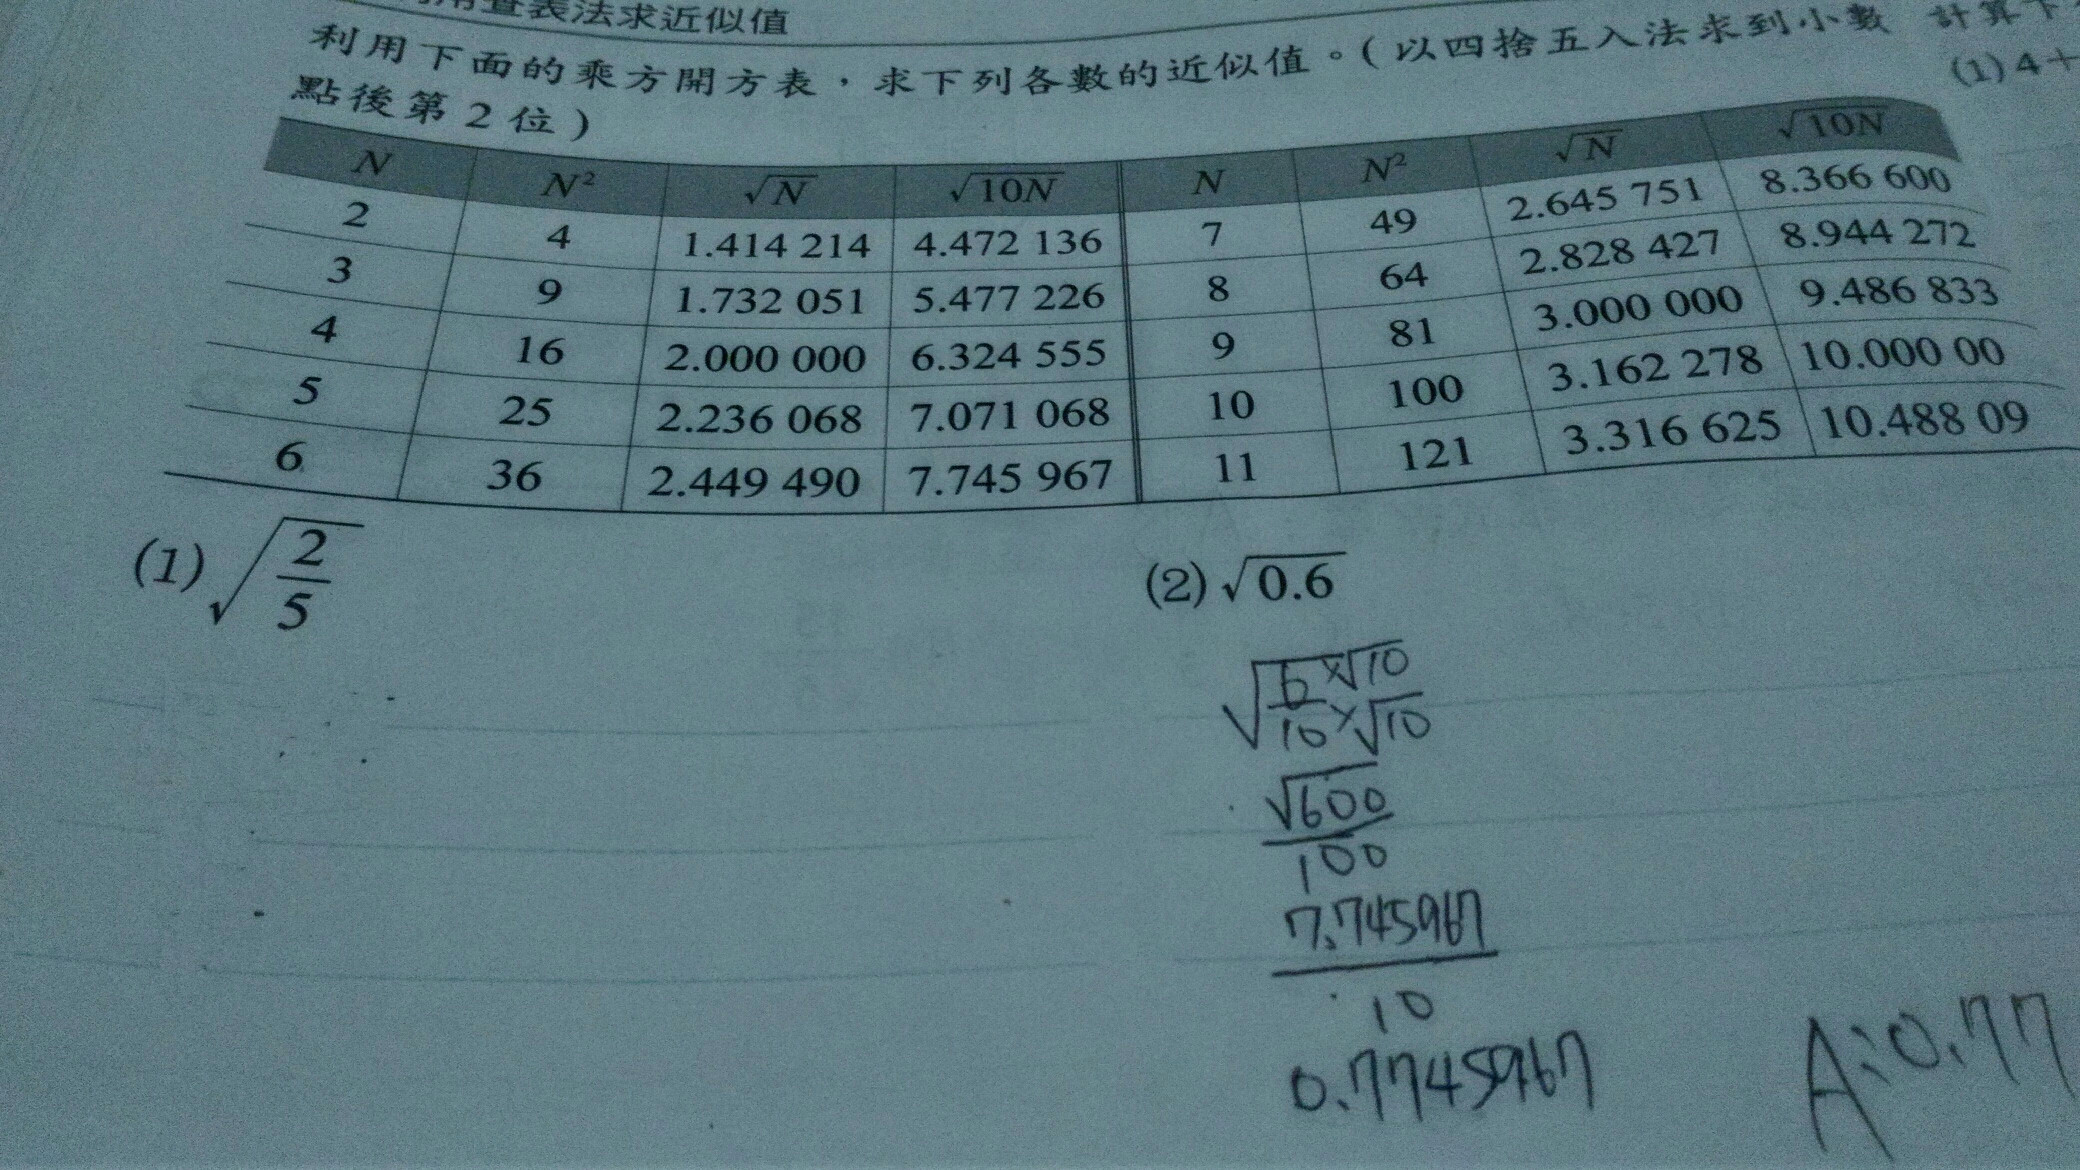 查表法求近似值
利用下面的乘方開方表，求下列各數的近似值。(以四捨五入法求到小數
點後第2位)
計算下
(1)4+
N N² √N √10N N N² √N √10N
2 4 1.414 214 4.472 136 7 49 2.645 751 8.366 600
3 9 1.732 051 5.477 226 8 64 2.828 427 8.944 272
4 16 2.000 000 6.324 555 9 81 3.000 000 9.486 833
5 25 2.236 068 7.071 068 10 100 3.162 278 10.000 00
6 36 2.449 490 7.745 967 11 121 3.316 625 10.488 09
(1) √2/5
(2) √0.6
√6×√10
10×√10
√600
100
7.745967
10
0.7745967
A:0.77